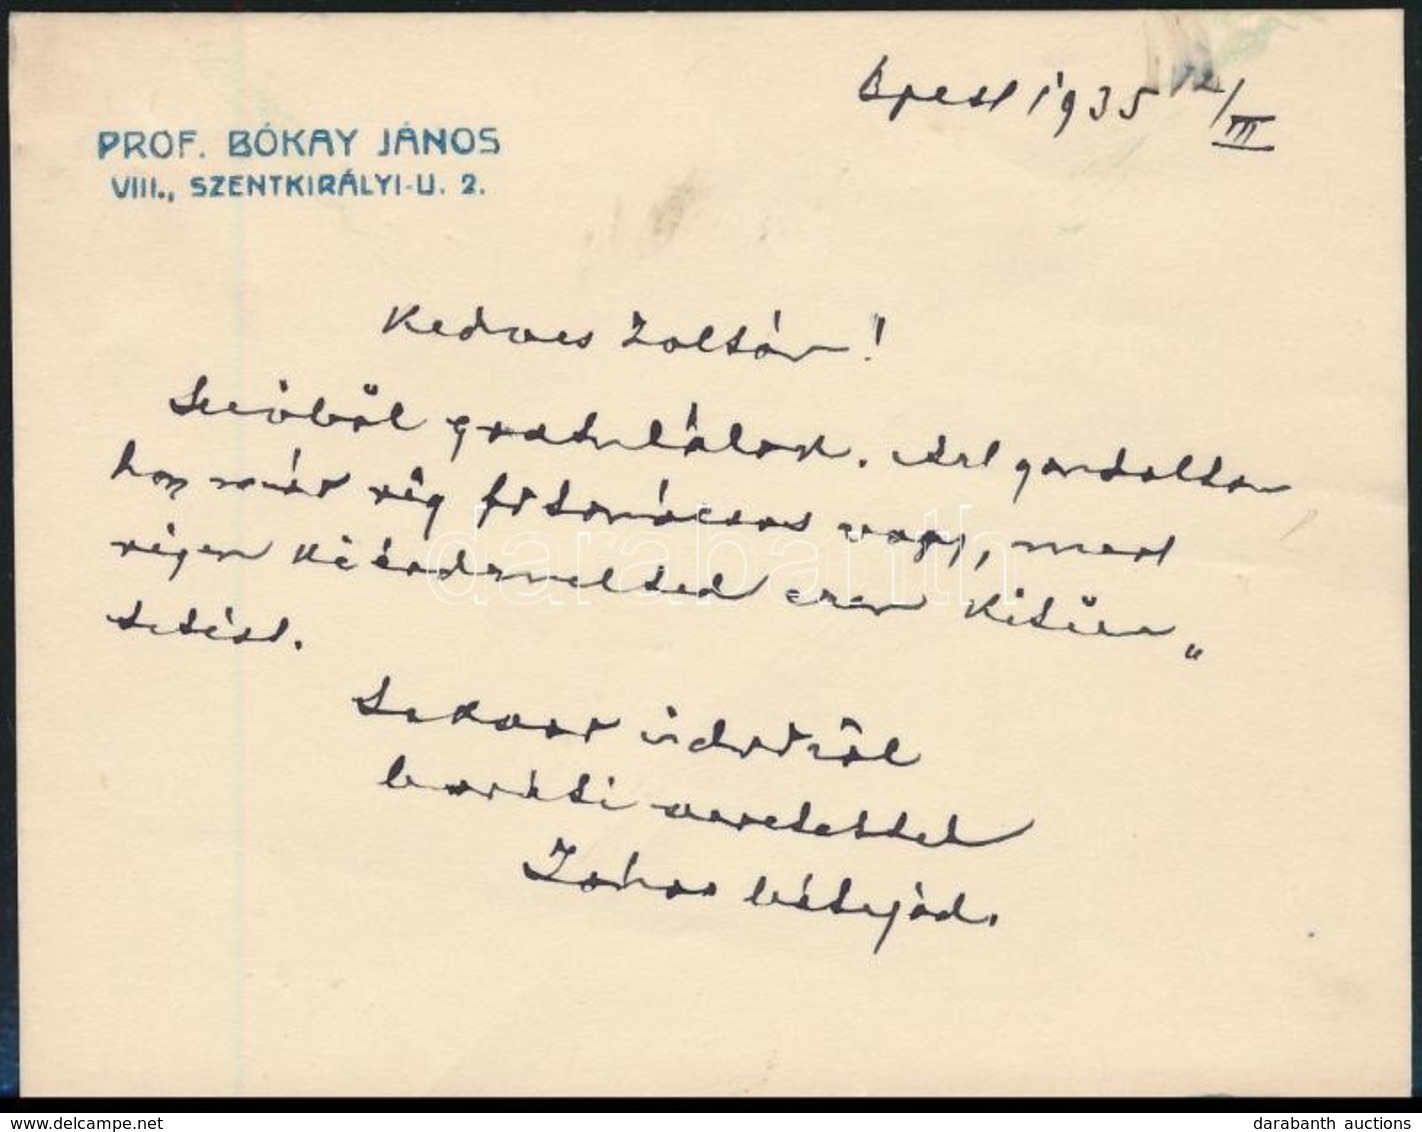 Bpest 1935 12/III
PROF. BÓKAY JÁNOS
VIII., SZENTKIRÁLYI-U. 2.
Kedves Zoltán!
Szivböl gratulálok. Azt gondoltam
hogy már rég főtanácsos vagy, mert
régen kiérdemelted ezen kitün„
tetést.
Sokszor üdvözöl
baráti szeretettel
János bátyád.
darabanth
darabanth auctions